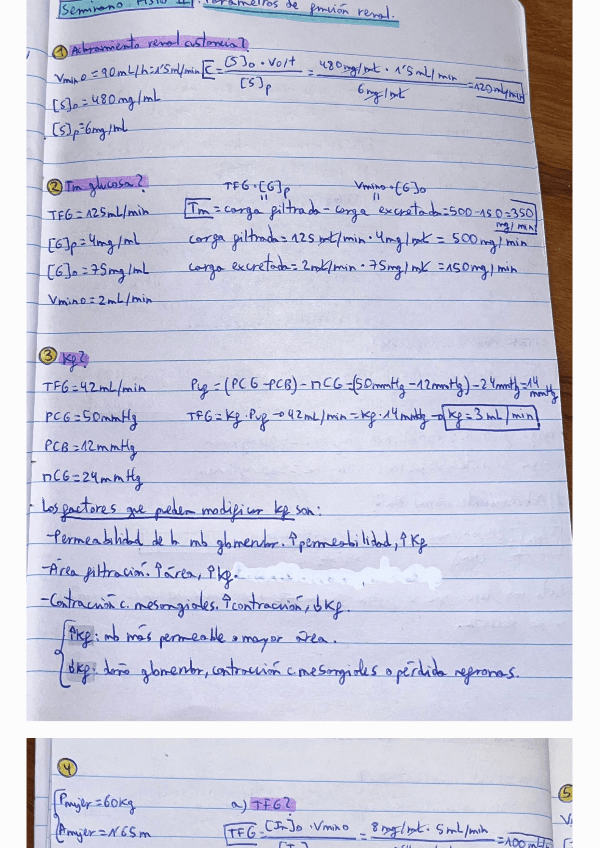 Seminario Fisio II: Parámetros de función renal.
① Aclaramiento renal sustancia?
Vmino = 90mL/h = 1'5ml/min C = [S]o · Vo/t / [S]p = 480mg/mL · 1'5mL/min / 6mg/mL = 120mL/min
[S]o = 480mg/mL
[S]p = 6mg/mL
② Tm glucosa?
TFG·[G]p Vmino·[G]o
TFG = 125mL/min Tm = carga filtrada - carga excretada = 500-150 = 350 mg/min
[G]p = 4mg/mL carga filtrada = 125mL/min · 4mg/mL = 500mg/min
[G]o = 75mg/mL carga excretada = 2mL/min · 75mg/mL = 150mg/min
Vmino = 2mL/min
③ Kf?
TFG = 42mL/min Puf = (PCG - PCB) - πCG = (50mmHg - 12mmHg) - 24mmHg = 14 mmHg
PCG = 50mmHg TFG = Kf · Puf → 42mL/min = Kf · 14mmHg → Kf = 3mL/min
PCB = 12mmHg
πCG = 24mmHg
· Los factores que pueden modificar Kf son:
-Permeabilidad de la mb glomerular. ↑permeabilidad, ↑Kf
-Área filtración. ↑área, ↑Kf.
-Contracción c. mesangiales. ↑contracción, ↓Kf.
↑Kf: mb más permeable o mayor área.
↓Kf: daño glomerular, contracción c. mesangiales o pérdida nefronas.
④
Pmujer = 60kg a) TFG?
Amujer = 1'65m TFG = [In]o · Vmino = 8mg/mL · 5mL/min = 100mL
⑤